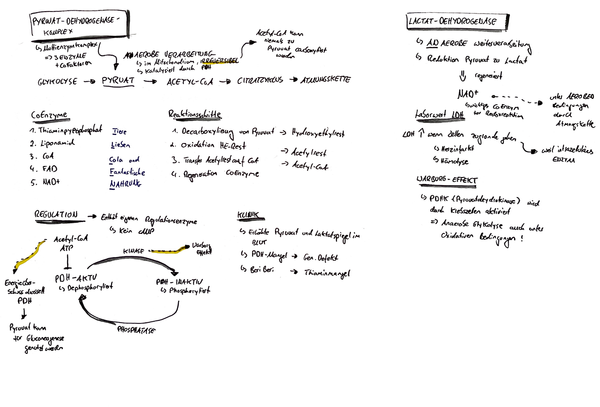 PYRUVAT-DEHYDROGENASE-
KOMPLEX
↳ Multienzymkomplex
⇒ 3 ENZYME
+ Cofaktoren
AEROBE VERARBEITUNG
↳ im Mitochondrium, IRREVERSIBEL
↳ Katalysiert durch PDH
Acetyl-CoA kann
niemals zu
Pyruvat carboxyliert
werden
GLYKOLYSE → PYRUAT → ACETYL-CoA → CITRATZYKLUS → ATMUNGSKETTE
CoENZYME
1. Thiaminpyrophosphat
2. Liponamid
3. CoA
4. FAD
5. NAD+
Tiere
Lieben
Cola und
Fantastische
NAHRUNG
Reaktionsschritte
1. Decarboxylierung von Pyruvat → Hydroxyethylrest
2. Oxidation HE-Rest → Acetylrest
3. Transfer Acetylrest auf CoA → Acetyl-CoA
4. Regeneration Coenzyme
REGULATION → Enthält eigenen Regulationsenzyme
↳ Kein cAMP
Acetyl-CoA
ATP
KINASE → Warburg
Effekt
PDH-AKTIV
↳ Dephosphoryliert
PDH-INAKTIV
↳ Phosphoryliert
PHOSPHATASE
PDH
Pyruvat kann
für Gluconeogenese
genutzt werden
KLINIK
↳ Erhöhte Pyruvat und Laktatspiegel im
BLUT
↳ PDH-Mangel → Gen. Defekt
↳ Beri Beri → Thiaminmangel
LACTAT-DEHYDROGENASE
↳ ANAEROBE Weiterverarbeitung
↳ Reduktion Pyruvat zu Lactat
⇓ regeneriert
NAD+
↳ wichtiges Coenzym
unter AEROBEN
Bedingungen
durch
Atmungskette
Laborwert LDH
LDH ↑ wenn Zellen zugrunde gehen
↳ Herzinfarkt
↳ Hämolyse
WARBURG-EFFEKT
↳ PDHK (Pyruvatdehydrokinase) wird
durch Krebszellen aktiviert
⇒ Anaerobe Glykolyse auch unter
Oxidativen Bedingungen!